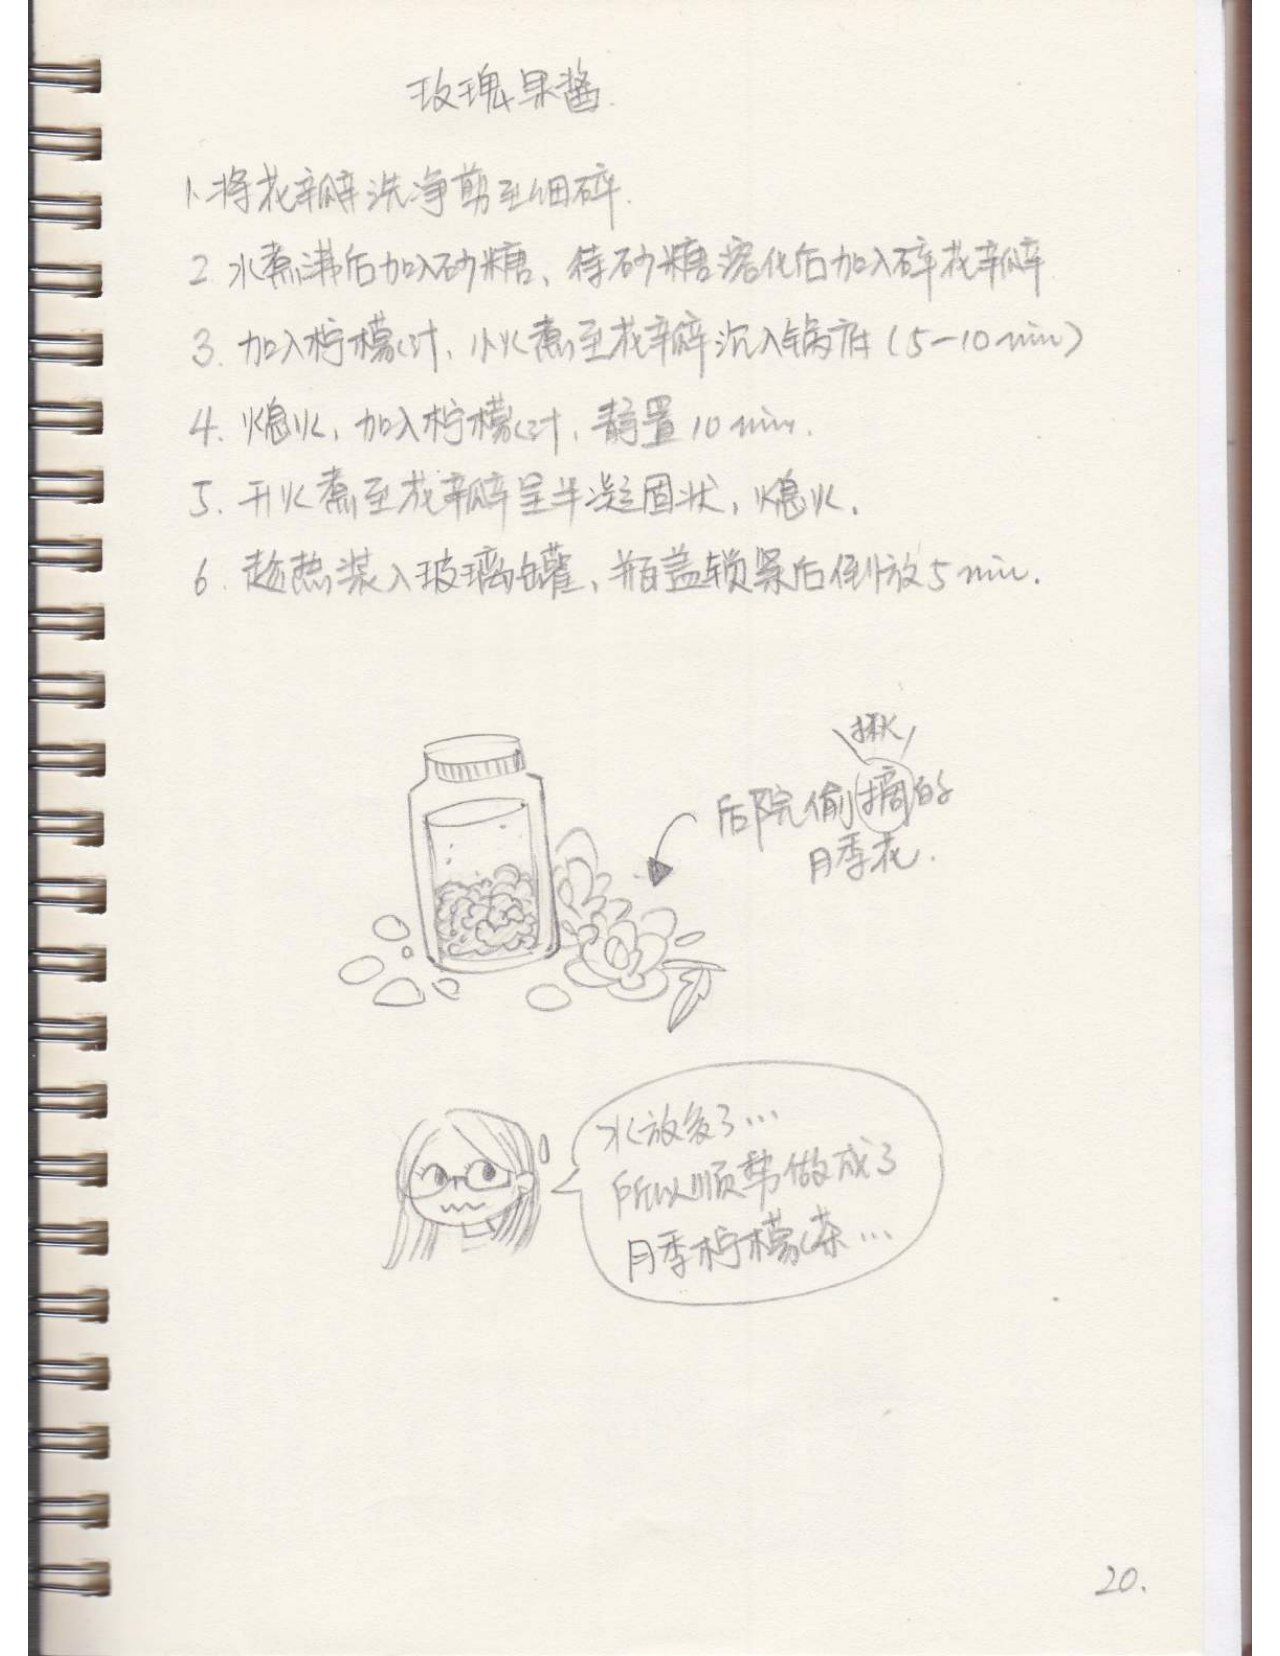 玫瑰果酱.
1. 将花瓣洗净剪至细碎.
2. 水煮沸后加入砂糖、待砂糖溶化后加入碎花瓣
3. 加入柠檬汁, 小火煮至花瓣沉入锅底 (5-10min)
4. 熄火, 加入柠檬汁, 静置10min.
5. 开火煮至花瓣呈半凝固状, 熄火.
6. 趁热装入玻璃罐、瓶盖锁紧后倒放5min.
揪
后院偷摘的
月季花.
水放多了...
所以顺带做成了
月季柠檬茶...
20.